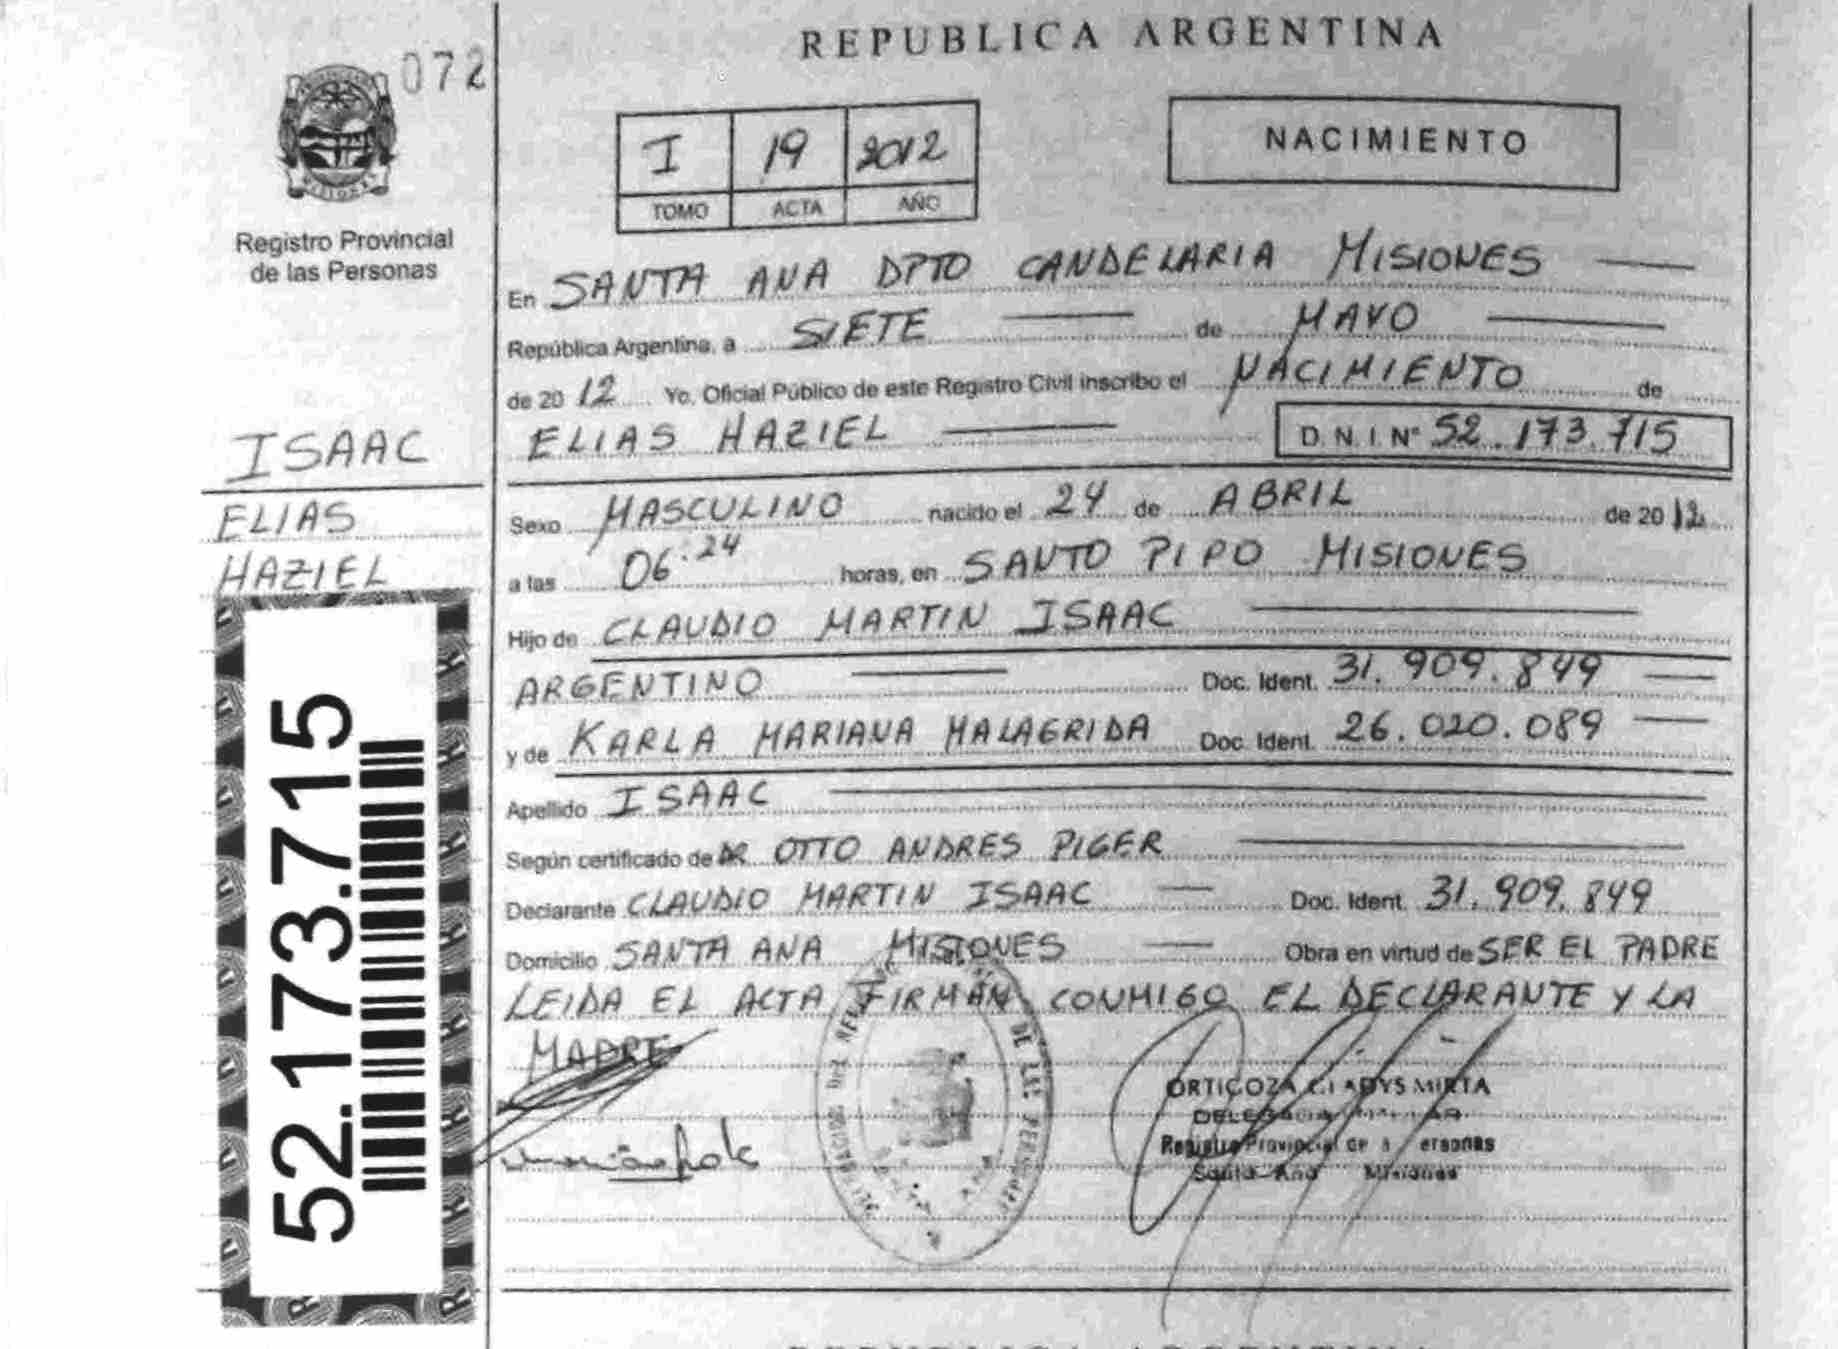 072
REPUBLICA ARGENTINA
I 19 2012
TOMO ACTA AÑO
NACIMIENTO
MISIONES
Registro Provincial
de las Personas
En SANTA ANA DPTO CANDELARIA MISIONES
República Argentina, a SIETE de MAYO
de 20 12 Yo, Oficial Público de este Registro Civil inscribo el NACIMIENTO de
ELIAS HAZIEL D.N.I. N° 52.173.715
ISAAC
ELIAS
HAZIEL
52.173.715
Sexo MASCULINO nacido el 24 de ABRIL de 20 12
a las 06:24 horas, en SANTO PIPO MISIONES
Hijo de CLAUDIO MARTIN ISAAC
ARGENTINO Doc. Ident. 31.909.849
y de KARLA MARIANA MALAGRIDA Doc. Ident. 26.020.089
Apellido ISAAC
Según certificado de DR OTTO ANDRES PIGER
Declarante CLAUDIO MARTIN ISAAC Doc. Ident. 31.909.849
Domicilio SANTA ANA MISIONES Obra en virtud de SER EL PADRE
LEIDA EL ACTA FIRMAN CONMIGO EL DECLARANTE Y LA
MADRE
ORTIGOZA GLADYS MIRTA
Registro Provincial de
Santa Ana Misiones
DE LAS PERSONAS
REPUBLICA ARGENTINA